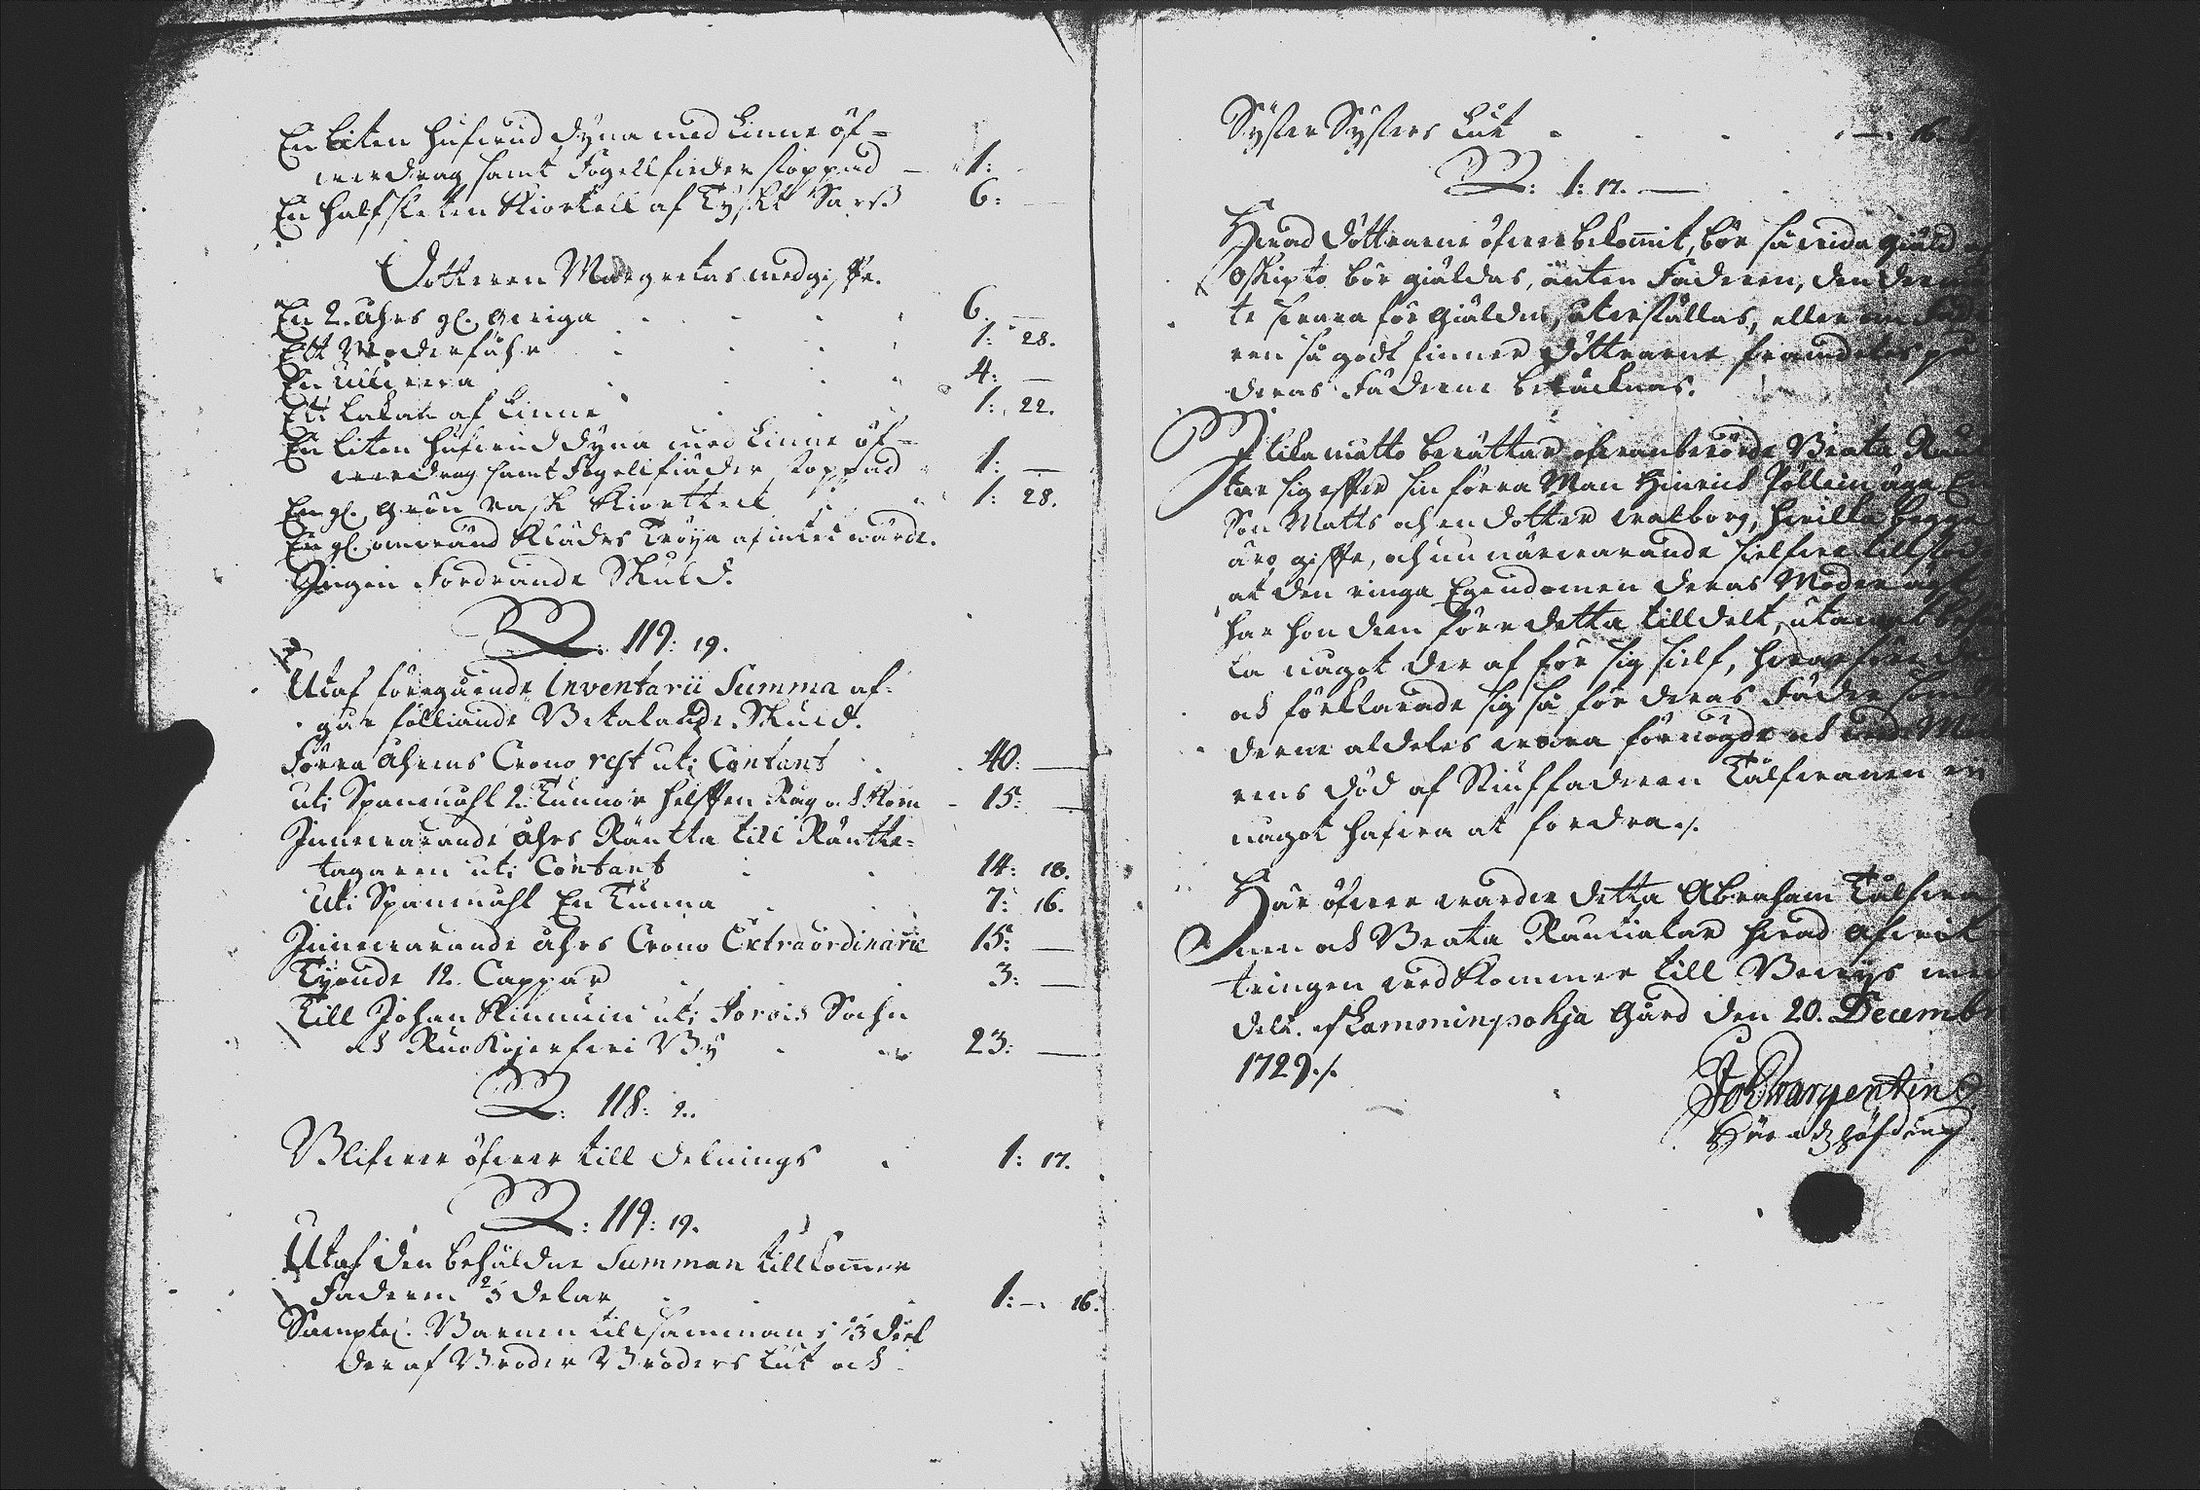 En liten hufwud dyna med Linne öf-
werdrag samt Fogell fieder stoppad — 1:
En halfsleten Kiortell af Tyskt Sars 6: —
Dotteren Margretas medgifft.
En 2. åhrs gl. qwiga 6. —
Ett Moderfåhr 1: 28.
En 4: —
Ett Lakan af Linne 1: 22.
En liten hufwud dyna med Linne öf-
werdrag samt Fogell fiäder stoppad 1: —
En gl. grön rask Kiorttell 1: 28.
En gl. Klädes Tröya af intet wärde.
Ingen Fordrande Skuld.
S: 119: 19.
Utaf föregående Inventarii Summa af-
går följiande Betalande Skuld.
Förra åhrens Crono rest uti Contant 40: —
uti Spanmåhl 2. Tunnor helfften Råg och Korn 15: —
Innewarande åhrs Räntta till Räntte-
tagaren uti Contant 14: 18.
Uti Spanmåhl En Tunna 7: 16.
Innewarande åhrs Crono Extraordinarie 15: —
Tyonde 12. Cappar 3: —
Till Johan Kinnuin uti Jorois Sochn
och Ruokojerfwi By 23: —
S: 118: 2.
Blifwer öfwer till delnings 1: 17.
S: 119: 19.
Utaf den behåldne Summan tillkommer
Faderen 2/3 delar 1: —. 16.
Samptl. Barnen tillsamman 1/3 deel
deraf Broder Broders Lut och
Syster Systers Lut —. 16.
S: 1: 17. —
Hwad döttrarne öfwerbekommit, bör så wida giäld af
Oskipto bör giäldas, änten Faderen, den der
te swara för giälden, återställas, eller om Fade
ren så godt finner döttrarne framdeles på
deras Fäderne beräcknas.
I lika måtto berättar ofwanberörde Beata
tar sig effter sin förra Man Hinrich Pöllein äga En
Son Matts och en dotter Walborg, hwilka begge
äro giffte, och nu närwarande sielfwe tillstod
at den ringa Egendomen deras Moder ägt
har hon dem förr detta tilldelt, utan at beh
la något der af för sig sielf, hwarföre
och förklarade sig så för deras Fäder som
derne aldeles wara förnögde och wed Mo
rens död af Stiuffaderen Tålfwanen
något hafwa at fordra./.
Här öfwer warder detta Abraham Tålfwa
nen och Beata hwad afwit
tringen wedkommer till Bewijs med
delt. af Lamminpohja Gård den 20. Decemb
1729./.
Wargentin
Häradzhöfding